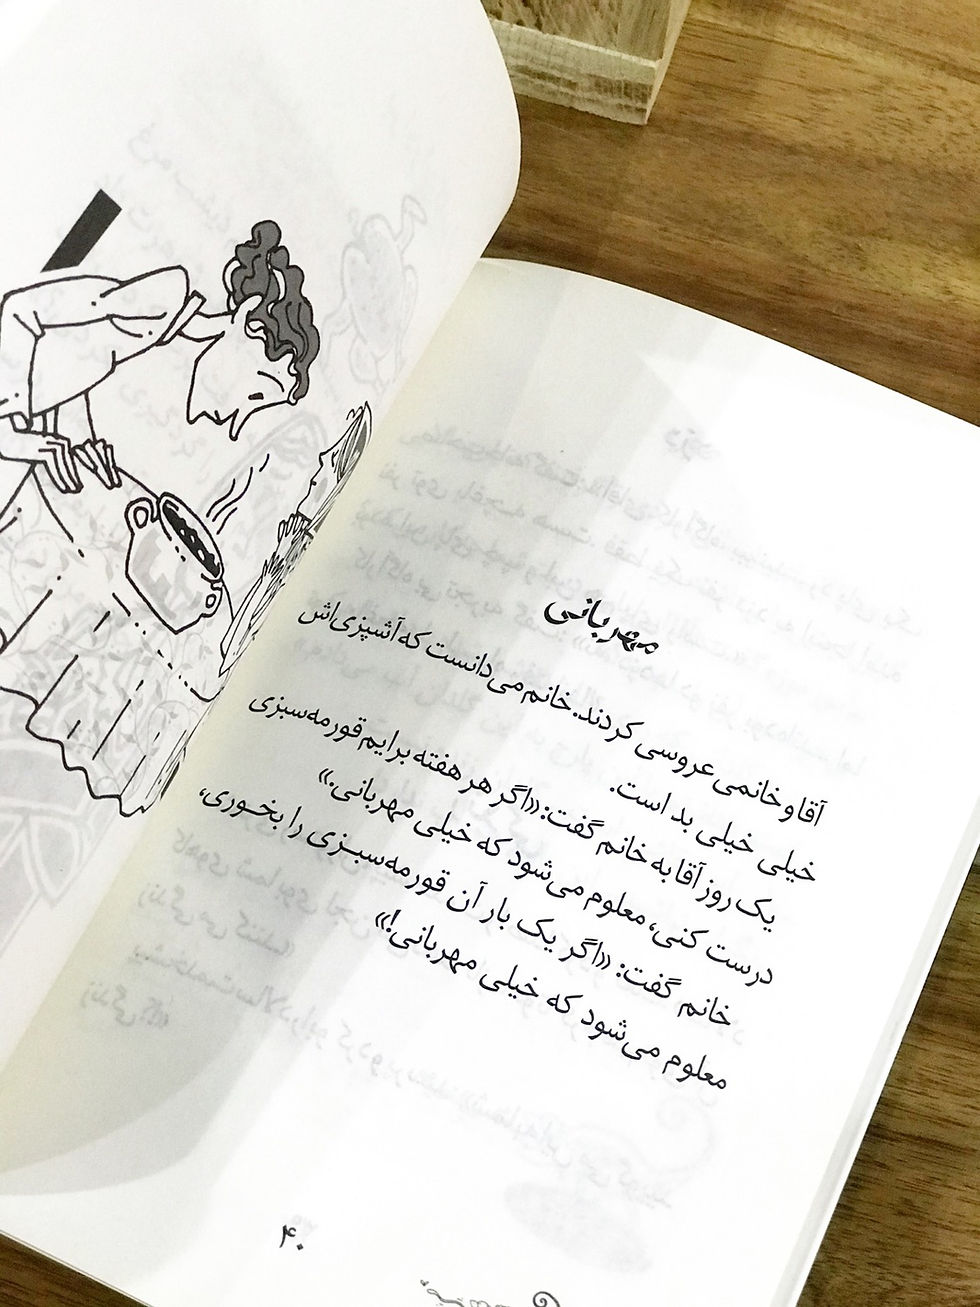 مهربانی
آقا و خانمی عروسی کردند. خانم می‌دانست که آشپزی‌اش
خیلی خیلی بد است.
یک روز آقا به خانم گفت: «اگر هر هفته برایم قورمه‌سبزی
درست کنی، معلوم می‌شود که خیلی مهربانی.»
خانم گفت: «اگر یک بار آن قورمه‌سبـزی را بخـوری،
معلوم می‌شود که خیلی مهربانی!»
۴۰